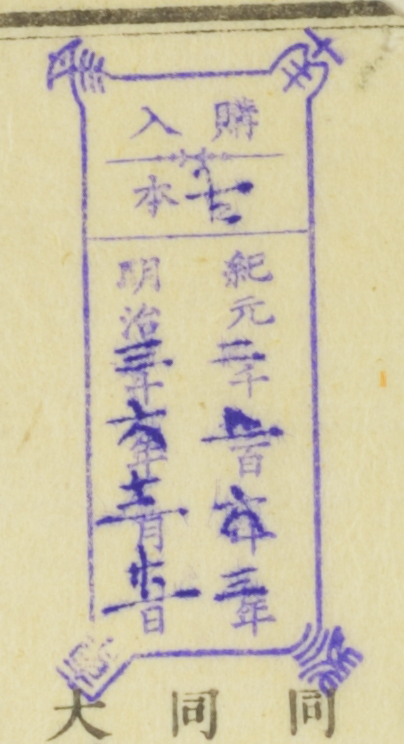 購入
古本
紀元二千五百六十三年
明治三十六年十二月廿一日
同
同
大